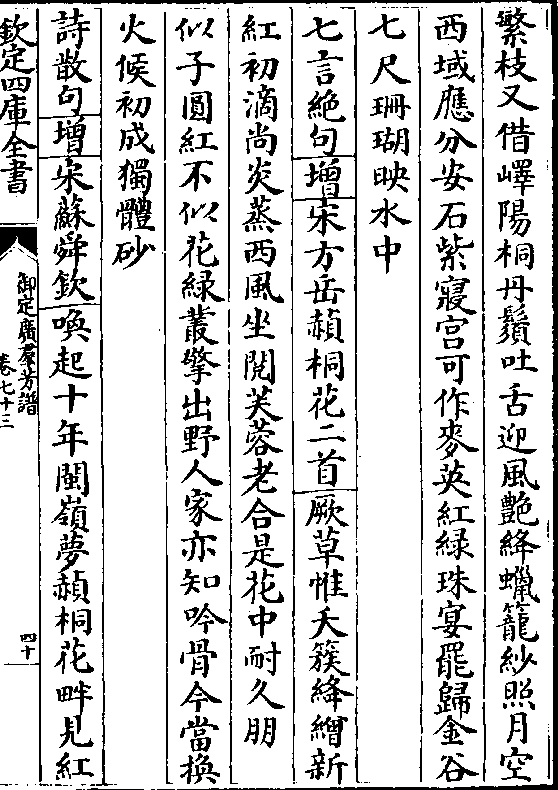 繁枝又借嶧陽桐丹鬚吐舌迎風艶絳蠟籠紗照月空
西域應分安石紫寢宫可作麥英紅緑珠宴罷歸金谷
七尺珊瑚映水中
七言絶句增宋方岳赬桐花二首厥草惟夭簇絳繒新
紅初滴尚炎蒸西風坐閱芙蓉老合是花中耐久朋
似子圓紅不似花緑叢擎出野人家亦知吟骨今當換
火候初成獨體砂
詩散句增宋蘇舜欽喚起十年閩嶺夢赬桐花畔見紅
欽定四庫全書
御定廣羣芳譜
卷七十三
四十